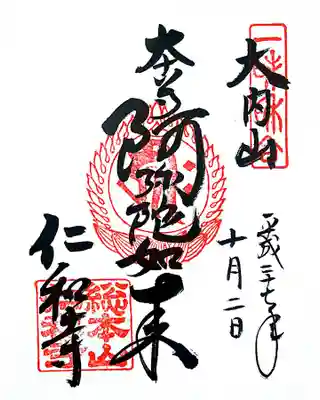 大内山
平成二十七年
十月二日
本尊阿弥陀如来
仁和寺
総本山